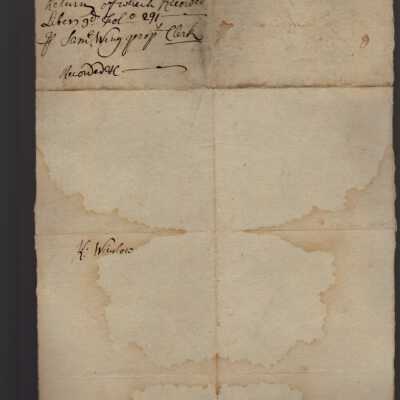 Return of which Recorded
Liber 3d Folo 291
Pr Saml Wing propr Clerk
Recorded
K: Winslow